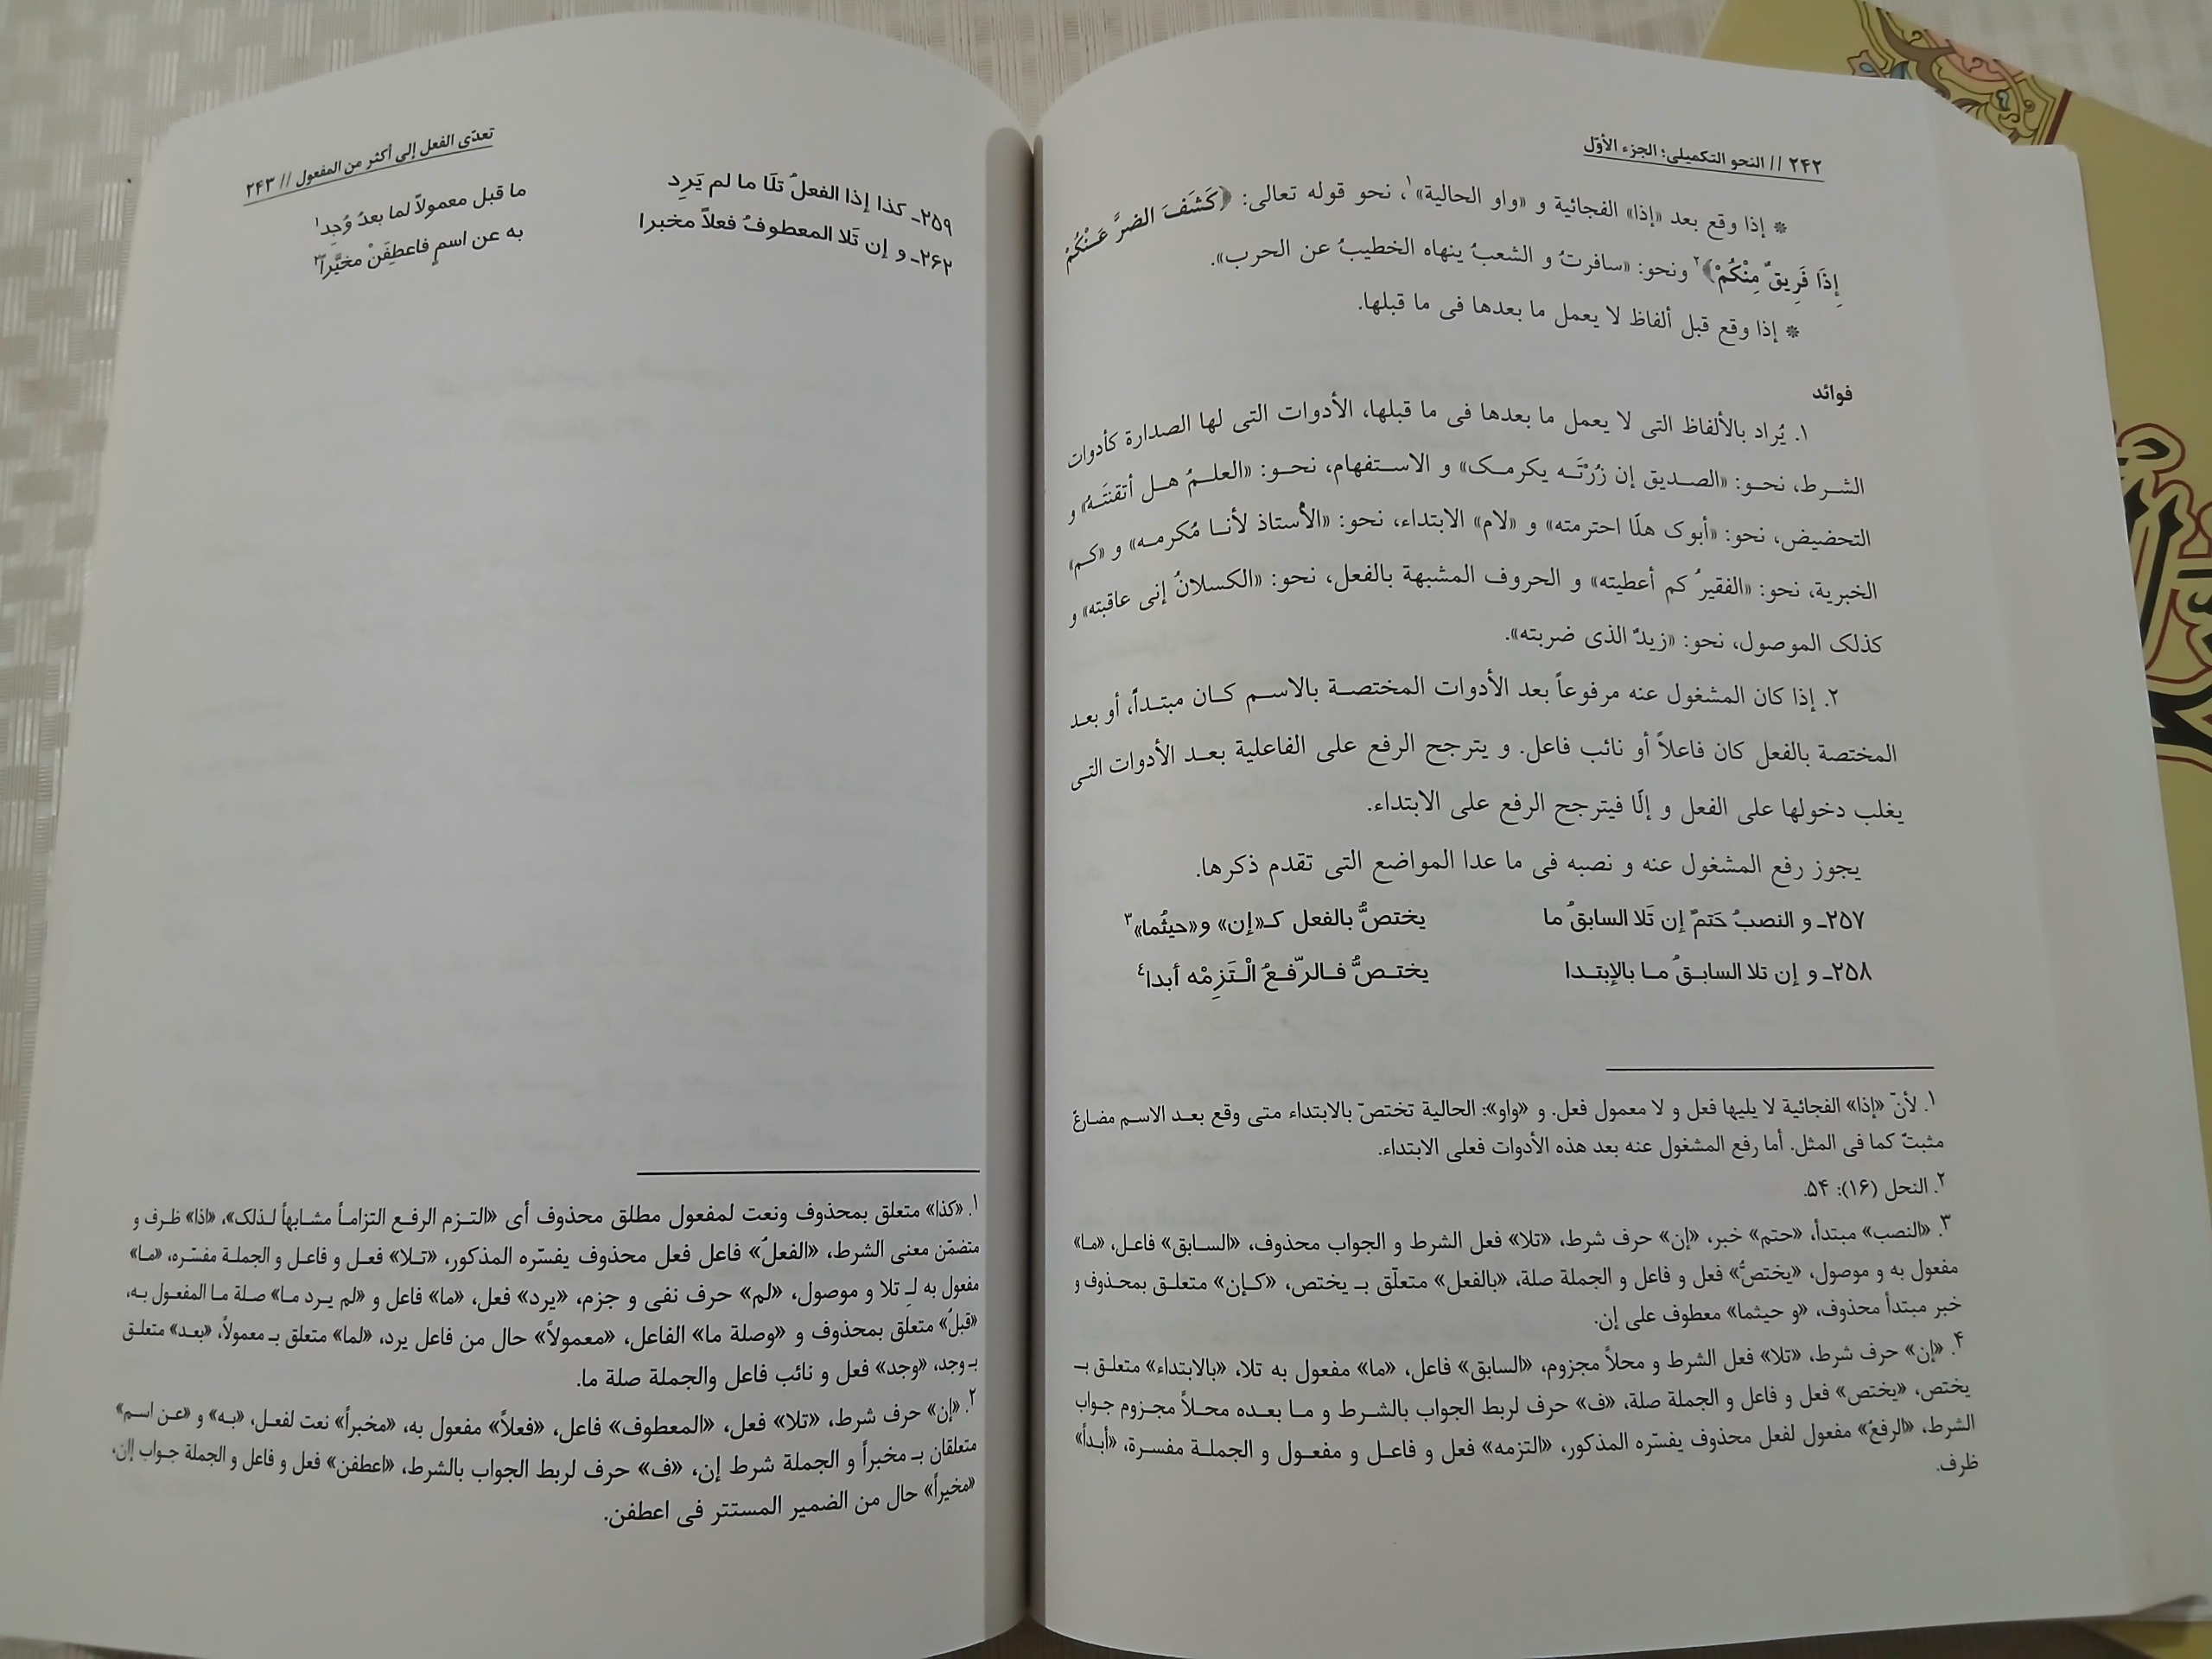 ٢۴٢ // النحو التکمیلی؛ الجزء الأوّل
* إذا وقع بعد «إذا» الفجائیة و «واو الحالیة»١، نحو قوله تعالی: ﴿کَشَفَ الضرَّ عَنْکُمْ
إِذَا فَرِیقٌ مِنْکُمْ﴾٢ ونحو: «سافرتُ و الشعبُ ینهاه الخطیبُ عن الحرب».
* إذا وقع قبل ألفاظ لا یعمل ما بعدها فی ما قبلها.
فوائد
١. یُراد بالألفاظ التی لا یعمل ما بعدها فی ما قبلها، الأدوات التی لها الصدارة کأدوات
الشرط، نحو: «الصدیق إن زُرْتَه یکرمک» و الاستفهام، نحو: «العلمُ هل أتقنتَهُ» و
التحضیض، نحو: «أبوک هلّا احترمته» و «لام» الابتداء، نحو: «الأستاذ لأنا مُکرمه» و «کم»
الخبریة، نحو: «الفقیرُ کم أعطیته» و الحروف المشبهة بالفعل، نحو: «الکسلانُ إنی عاقبته» و
کذلک الموصول، نحو: «زیدٌ الذی ضربته».
٢. إذا کان المشغول عنه مرفوعاً بعد الأدوات المختصة بالاسم کان مبتدأً، أو بعد
المختصة بالفعل کان فاعلاً أو نائب فاعل. و یترجح الرفع علی الفاعلیة بعد الأدوات التی
یغلب دخولها علی الفعل و إلّا فیترجح الرفع علی الابتداء.
یجوز رفع المشغول عنه و نصبه فی ما عدا المواضع التی تقدم ذکرها.
٢۵٧ـ و النصبُ حَتمٌ إن تَلا السابقُ ما یختصُّ بالفعل کـ«إن» و«حیثُما»٣
٢۵٨ـ و إن تلا السابقُ ما بالإبتدا یختصُّ فالرّفعُ الْتَزِمْه أبدا٤
١. لأنّ «إذا» الفجائیة لا یلیها فعل و لا معمول فعل. و «واو»: الحالیة تختصّ بالابتداء متی وقع بعد الاسم مضارعٌ
مثبتٌ کما فی المثل. أما رفع المشغول عنه بعد هذه الأدوات فعلی الابتداء.
٢. النحل (١۶): ۵۴.
٣. «النصب» مبتدأ، «حتم» خبر، «إن» حرف شرط، «تلا» فعل الشرط و الجواب محذوف، «السابق» فاعل، «ما»
مفعول به و موصول، «یختصُّ» فعل و فاعل و الجملة صلة، «بالفعل» متعلّق بـ یختص، «کإن» متعلق بمحذوف و
خبر مبتدأ محذوف، «و حیثما» معطوف علی إن.
۴. «إن» حرف شرط، «تلا» فعل الشرط و محلاً مجزوم، «السابق» فاعل، «ما» مفعول به تلا، «بالابتداء» متعلق بـ
یختص، «یختص» فعل و فاعل و الجملة صلة، «ف» حرف لربط الجواب بالشرط و ما بعده محلاً مجزوم جواب
الشرط، «الرفعُ» مفعول لفعل محذوف یفسّره المذکور، «التزمه» فعل و فاعل و مفعول و الجملة مفسرة، «أبداً»
ظرف.
تعدّی الفعل إلی أکثر من المفعول // ٢۴٣
٢۵٩ـ کذا إذا الفعلُ تلَا ما لم یَرِد ما قبل معمولاً لما بعدُ وُجِد١
٢۶٢ـ و إن تَلا المعطوفُ فعلاً مخبرا به عن اسمٍ فاعطِفَنْ مخیَّراً٢
١. «کذا» متعلق بمحذوف ونعت لمفعول مطلق محذوف أی «التزم الرفع التزاماً مشابهاً لذلک»، «اذا» ظرف و
متضمّن معنی الشرط، «الفعلُ» فاعل فعل محذوف یفسّره المذکور، «تلا» فعل و فاعل و الجملة مفسّره، «ما»
مفعول به لِـ تلا و موصول، «لم» حرف نفی و جزم، «یرد» فعل، «ما» فاعل و «لم یرد ما» صلة ما المفعول به،
«قبلُ» متعلق بمحذوف و «وصلة ما» الفاعل، «معمولاً» حال من فاعل یرد، «لما» متعلق بـ معمولاً، «بعد» متعلق
بـ وجد، «وجد» فعل و نائب فاعل والجملة صلة ما.
٢. «إن» حرف شرط، «تلا» فعل، «المعطوف» فاعل، «فعلاً» مفعول به، «مخبراً» نعت لفعل، «به» و «عن اسم»
متعلقان بـ مخبراً و الجملة شرط إن، «ف» حرف لربط الجواب بالشرط، «اعطفن» فعل و فاعل و الجملة جواب إن،
«مخیراً» حال من الضمیر المستتر فی اعطفن.